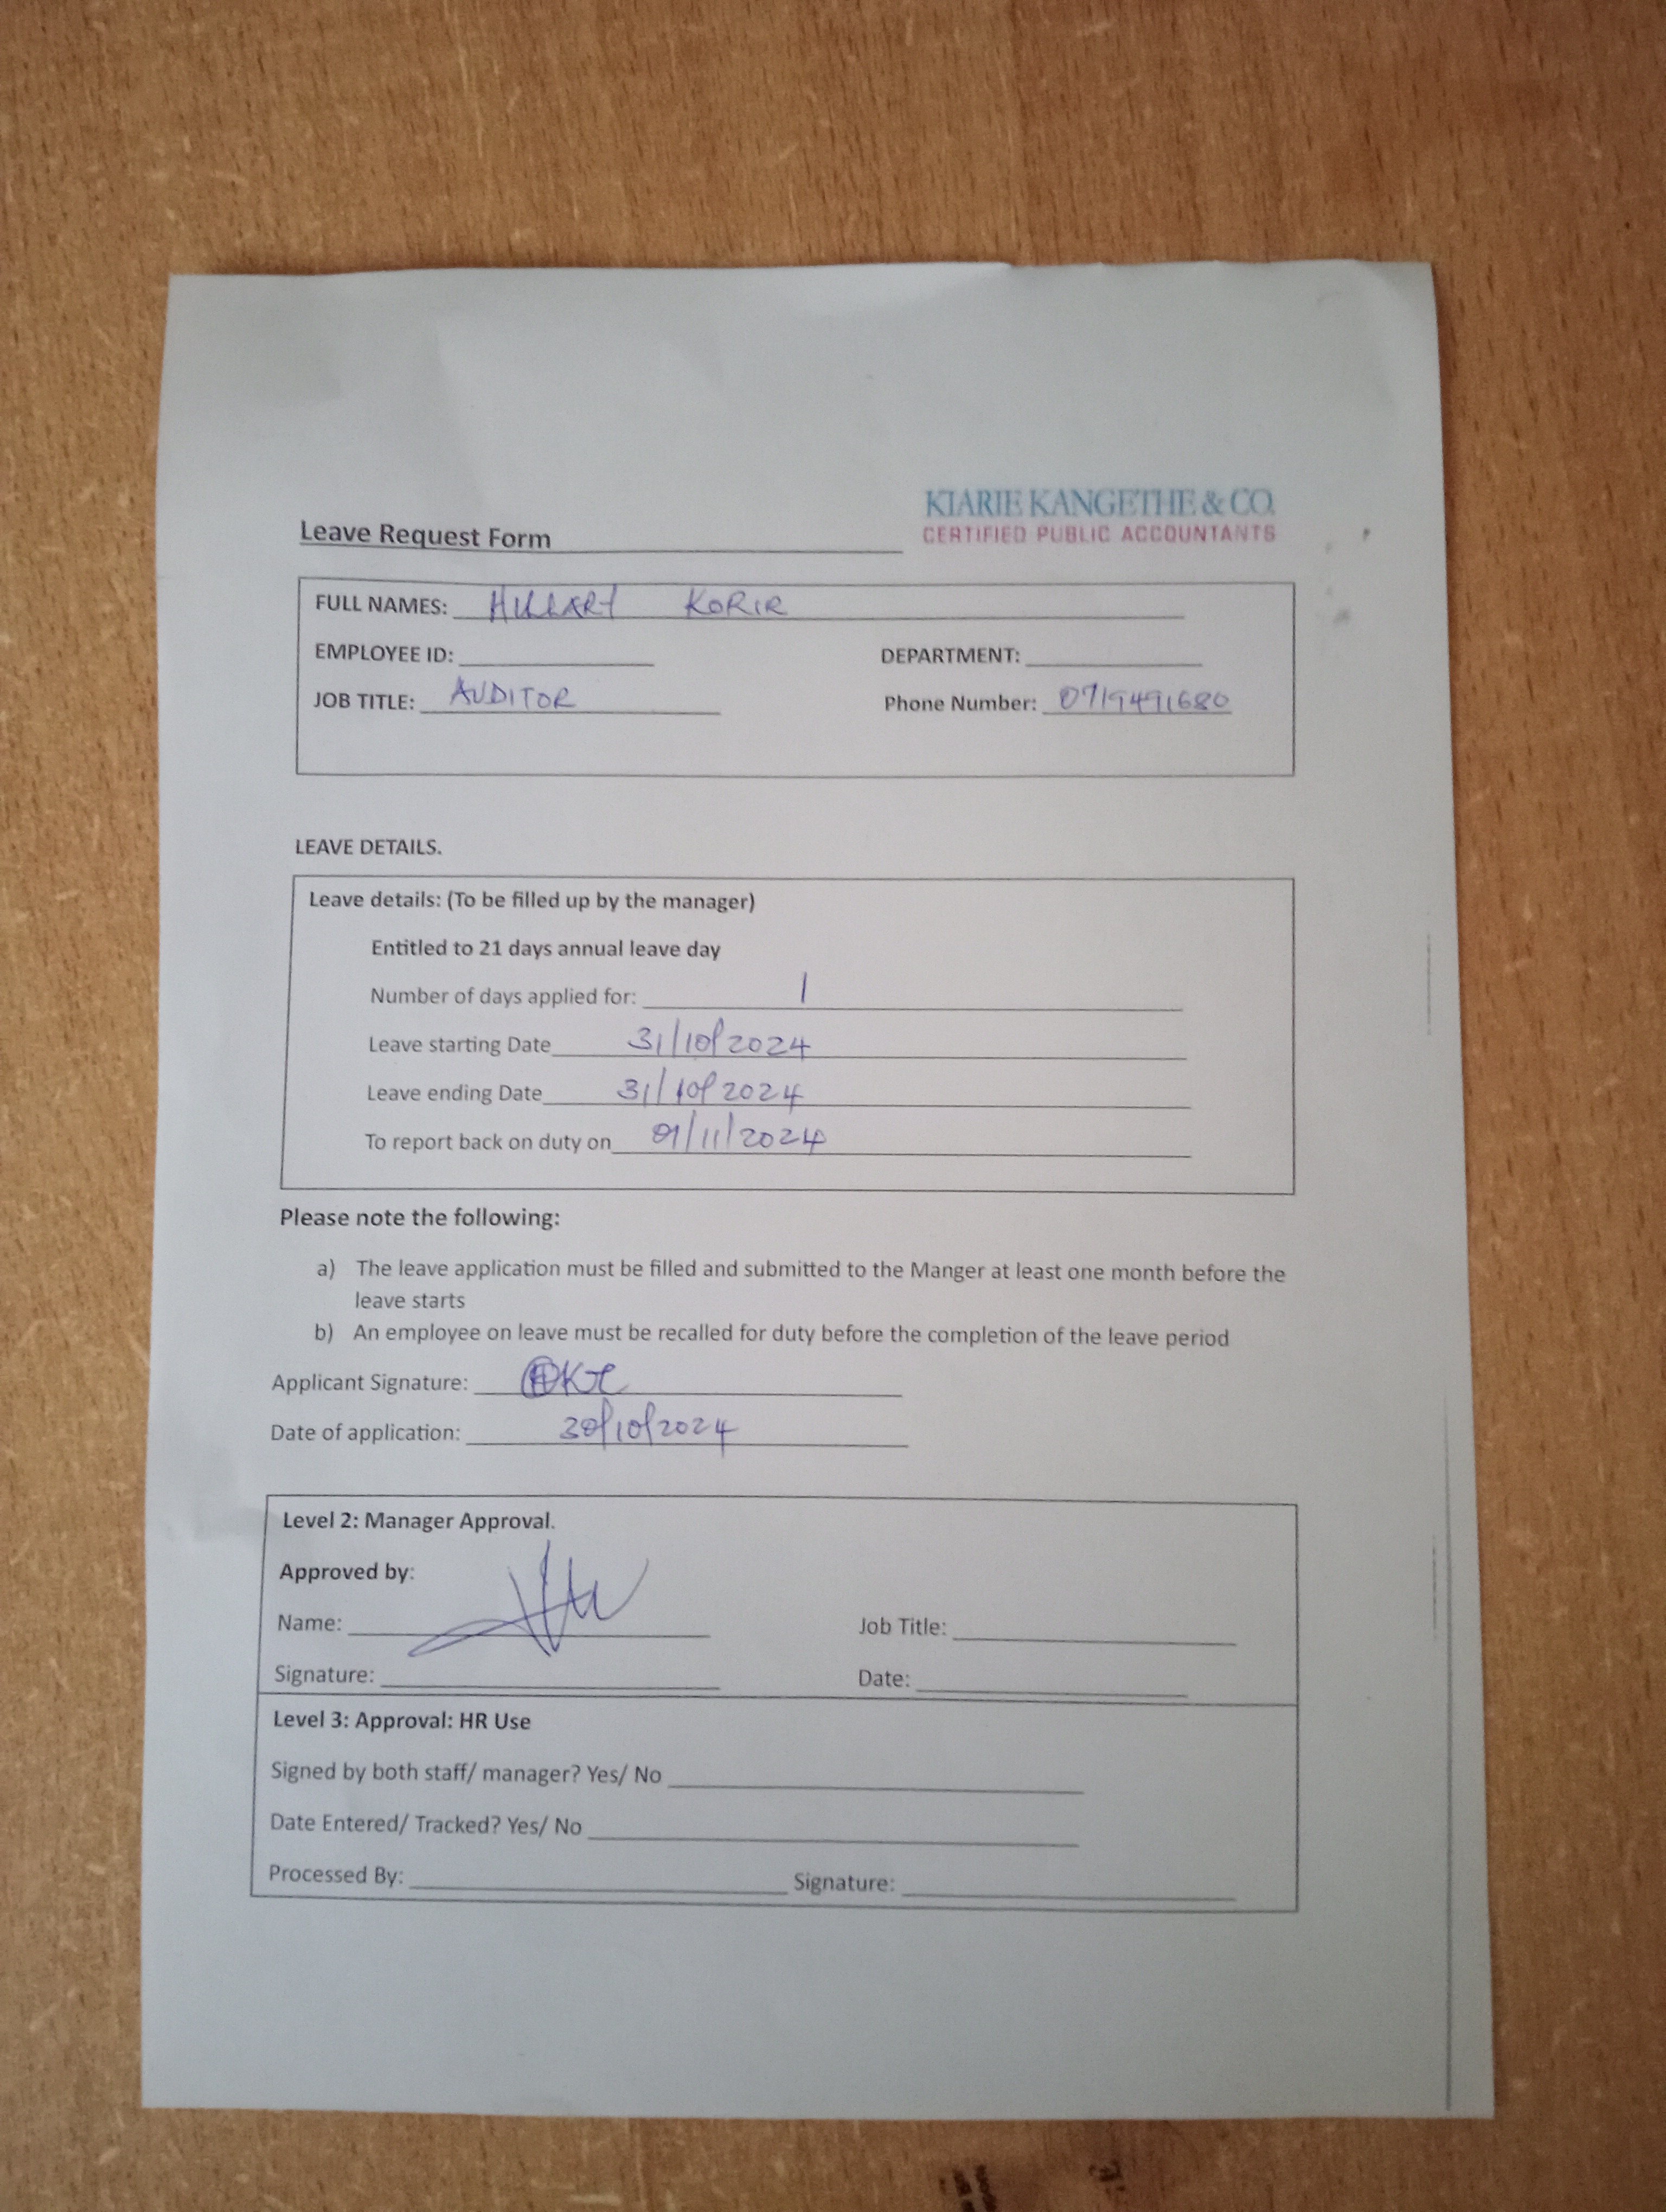 KIARIE KANGETHE & CO.
CERTIFIED PUBLIC ACCOUNTANTS
Leave Request Form
FULL NAMES: HILLARY KORIR
EMPLOYEE ID: DEPARTMENT:
JOB TITLE: AUDITOR Phone Number: 0719491680
LEAVE DETAILS.
Leave details: (To be filled up by the manager)
Entitled to 21 days annual leave day
Number of days applied for: 1
Leave starting Date 31/10/2024
Leave ending Date 31/10/2024
To report back on duty on 01/11/2024
Please note the following:
a) The leave application must be filled and submitted to the Manger at least one month before the
leave starts
b) An employee on leave must be recalled for duty before the completion of the leave period
Applicant Signature:
Date of application: 30/10/2024
Level 2: Manager Approval.
Approved by:
Name: Job Title:
Signature: Date:
Level 3: Approval: HR Use
Signed by both staff/ manager? Yes/ No
Date Entered/ Tracked? Yes/ No
Processed By: Signature: